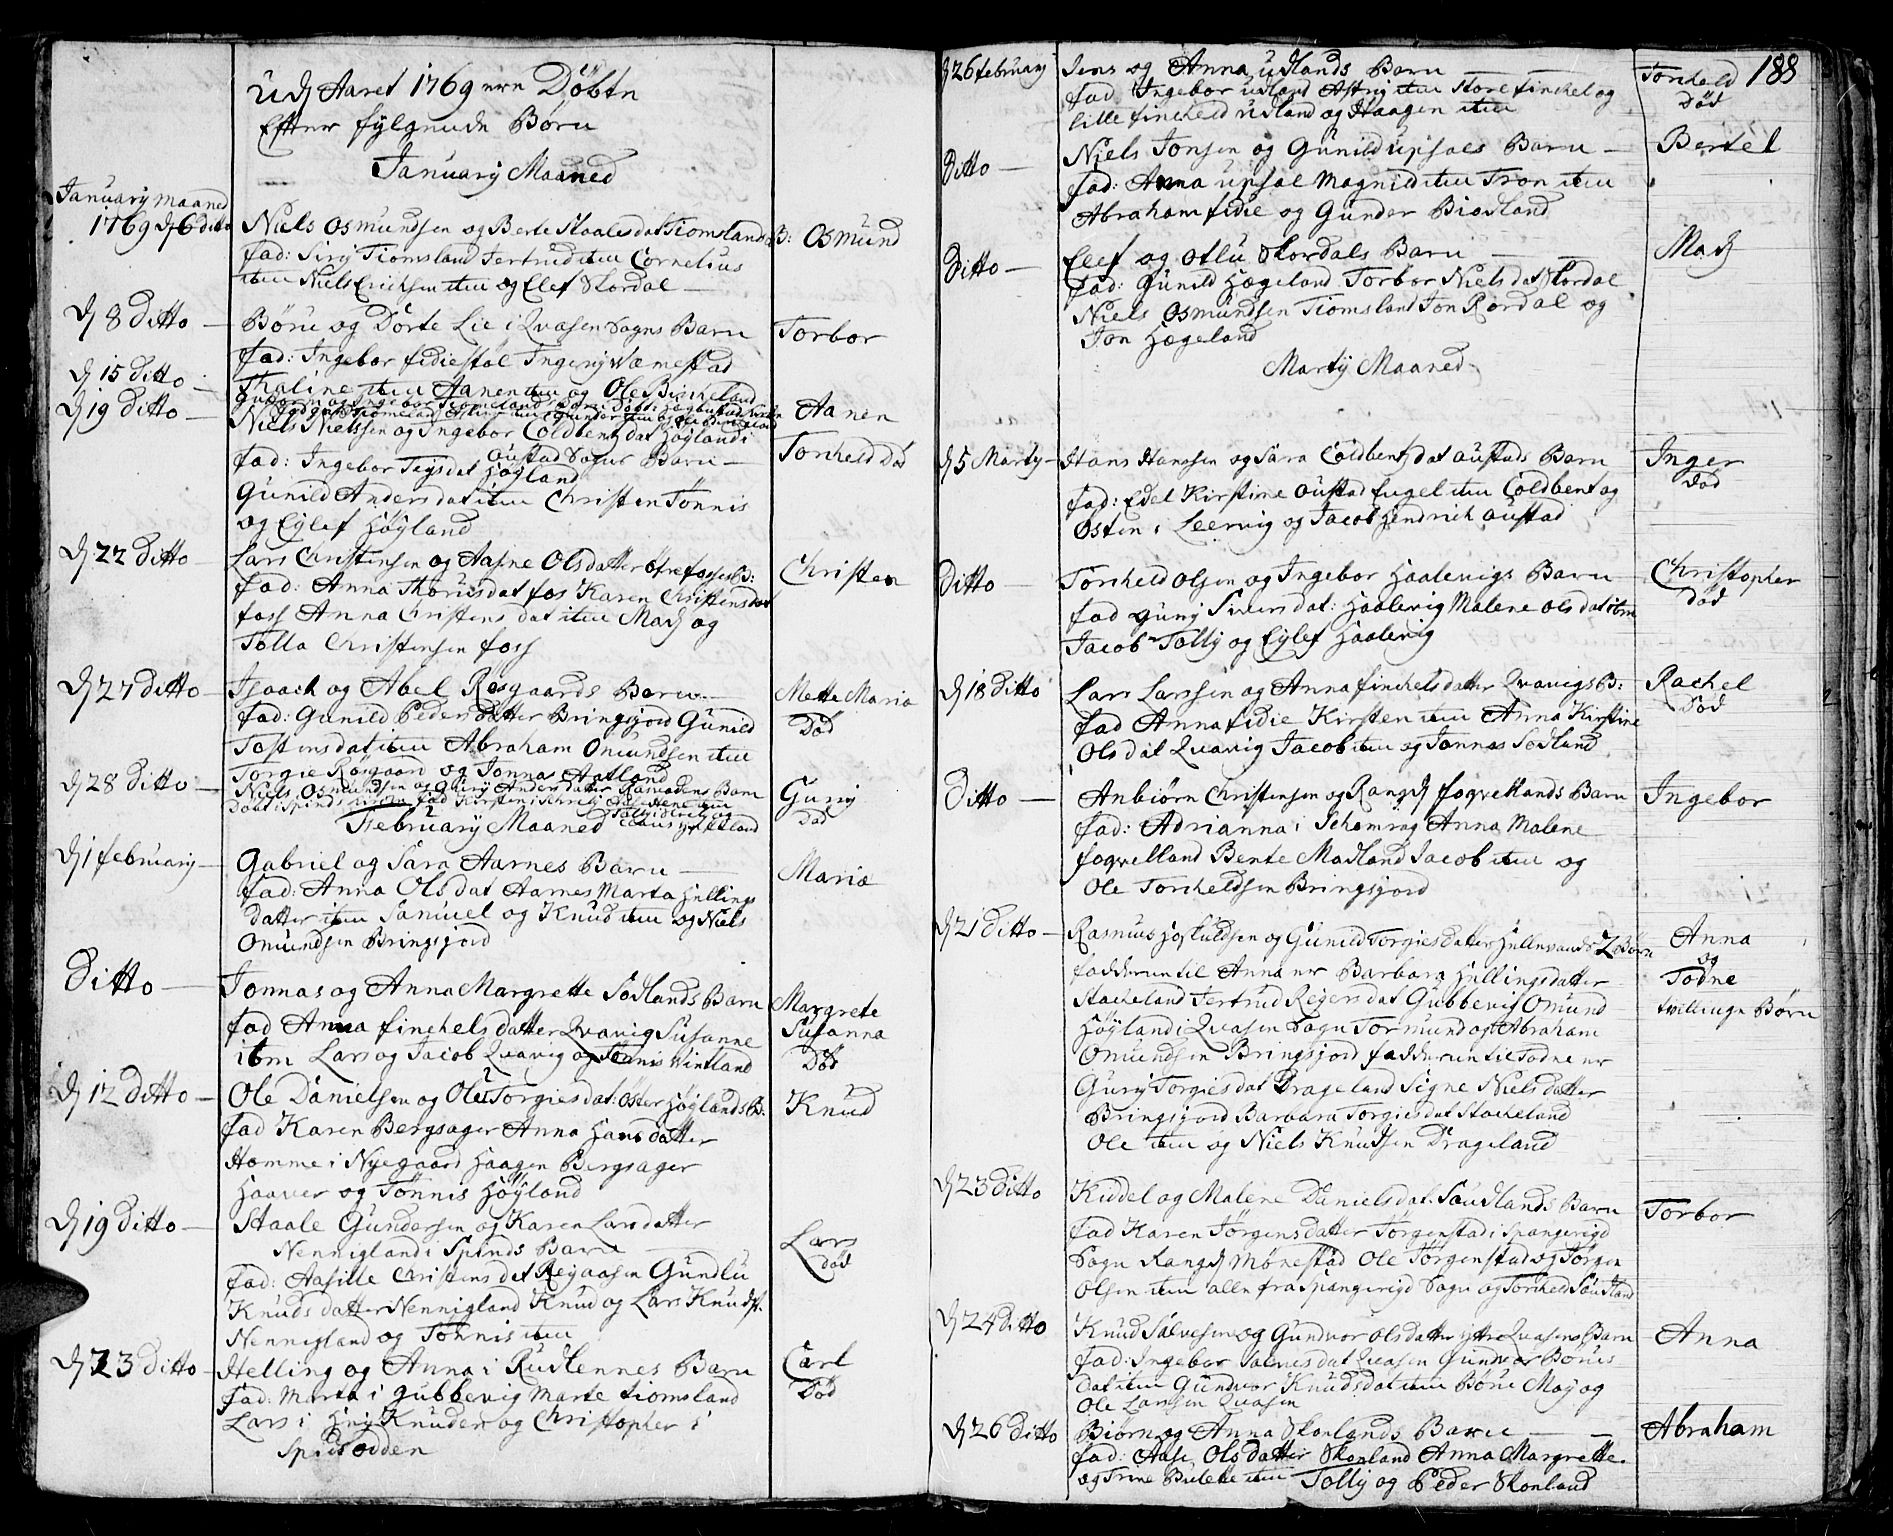 Udj Aaret 1769 ere Döbte
Efter fylgende Börn
January Maaned
January maaned
1769 dj 6 ditto Niels Osmundsen og Berte Staalesdat Tiomslands B: Osmund
fad: Siry Tiomsland Jertrud item Cornelius
item Niels Erichsen item og Elef Skordal
dj 8 Ditto Börie og Dorte Lie i Qvasen Sogns Barn Torbor
fad: Ingebor fidiestöl Ingeri Wæmestad
dj 15 Ditto
Thaline item Aanen item og Ole Bircheland
dj 19 Ditto Aanen
Niels Nielssen og Ingebor Coldbentzdat Höyland i
Oustad Sogns Barn Torcheld Död
fad: Ingebor Teysdat Höyland
Gunild Andersdat item Christen Tönnis
og Eylef Höyland
dj 22 Ditto Lars Christensen og Aasne Olsdatter öfre fosses B: Christen
fad: Anna Thorusdat fos Karen Christensdat
foss Anna Christensdat item Madj og
Tolla Christensen foss
dj 27 ditto Isaach og Abel Rösgaards Barn Mette Maria
fad: Gunild Pedersdatter Bringsjord Gunild Död
Tostensdat item Abraham Omundsen item
Torgie Rösgaard og Jonnas Aatland
dj 28 Ditto Niels Osmundsen og Gury Andersdatter Barn Gury
Död
February Maaned
dj 1 february Gabriel og Sara Aarnes Barn Maria
fad: Anna Olsdat Aarnes Marta Hellings
datter item Samuel og Knud item og Niels
Omundsen Bringsjord
Ditto Jonnas og Anna Margrette Sodlands Barn Margrete
fad Anna finchelsdatter Qvavig Susanne Susanna
ibm Lars og Jacob Qvavig og Tönnis Vintland Död
dj 12 ditto Ole Danielsen og Olu Torgiesdat: öster Höylands B: Knud
fad Karen Bergsager Anna Hansdatter
Homme i Nyegaard Haagen Bergsager
Haaver og Tönnis Höyland
dj 19 Ditto Staale Gundersen og Karen Larsdatter
Nennigland i Spinds Barn Lars
fad: Aasille Christensdat Reyaasen Gundlu död
Knudsdatter Nennigland Knud og Lars Knuds.
Nennigland og Tönnis item
dj 23 Ditto Helling og Anna i Rudlennes Barn Carl
fad: Marta i Gubbevig Marte Tiomsland Död
Lars i Knuden og Christopher i
Spidsodden
188
dj 26 february Jens og Anna Udlands Barn Torcheld
fad Ingebor Udland Astri item Store finchel og Död
lille fincheld Udland og Haagen item
Ditto Niels Jonsen og Gunild Upsals Barn Bertel
fad: Anna Upsal Magnild item Tron item
Abraham fidie og Gunder Biodland
Ditto Elef og Ollu Skordals Barn Madj
fad: Gunild Hægeland Torbor Nielsdat Skordal
Niels Osmundsen Tiomsland Jon Rordal og
Jon Hægeland
Marty Maaned
dj 5 Marty Hans Hanssen og Sara Coldbentzdat Oustads Barn Inger
fad: Edel Kirstine Oustad Engel item Coldbent og Död
Osten i Leervig og Jacob Hendrich Oustad
Ditto Torcheld Olsen og Ingebor Haalevigs Barn Christopher
fad Guny Siversdat: Haalevig Malene Olsdat ibm Död
Jacob Tolly og Eylef Haalevig
dj 18 ditto Lars Larssen og Anna finchelsdatter Qvavigs B: Rachel
fad Anna fidie Kirsten item Anna Kirstine Död
Olsdat Qvavig Jacob item og Jonnas Sodland
Ditto Anbiörn Christensen og Rangdj foqvellands Barn Ingebor
fad: Adrianna i Schomrag Anna Malene
foqvelland Bente Madland Jacob item og
Ole Torcheldsen Bringsjord
dj 21 Ditto Rasmus Hoskuldsen og Gunild Torgiesdatter Hellevands 2 Börn Anna
fadderne til Anna er Barbara Hellingsdatter og
Stacheland Jertrud Reyersdat Gubbevig Omund Todne
Höyland i Qvasen Sogn Tormund og Abraham tvillinge Börn
Omundsen Bringsjord fadderne til Todne er
Gury Torgiesdat Drageland Signe Nielsdatter
Bringsjord Barbara Torgiesdat Stacheland
Ole item og Niels Knudsen Drageland
dj 23 ditto Kiddel og Malene Danielsdat: Soudlands Barn Torbor
fad Karen Jörgensdatter Jörgenstad i Spangerigd
Sogn Rangdj Mönestad Ole Jörgenstad og Jörgen
Olsen item alle fra Spangerigd Sogn og Torcheld Soudland
dj 24 ditto Knud Salvesen og Gundvor Olsdatter ytre Qvasens Barn Anna
fad: Ingebor Salvesdat Qvasen Gundvor Böries
dat item Gundvor Knudsdat item Börie Moy og
Ole Larssen Qvasen
dj 26 ditto Biörn og Anna Skonlands Barn Abraham
fad: Aase Olsdatter Skonland Anna Margrette
og Trine Bulette item Tolly og Peder Skonland